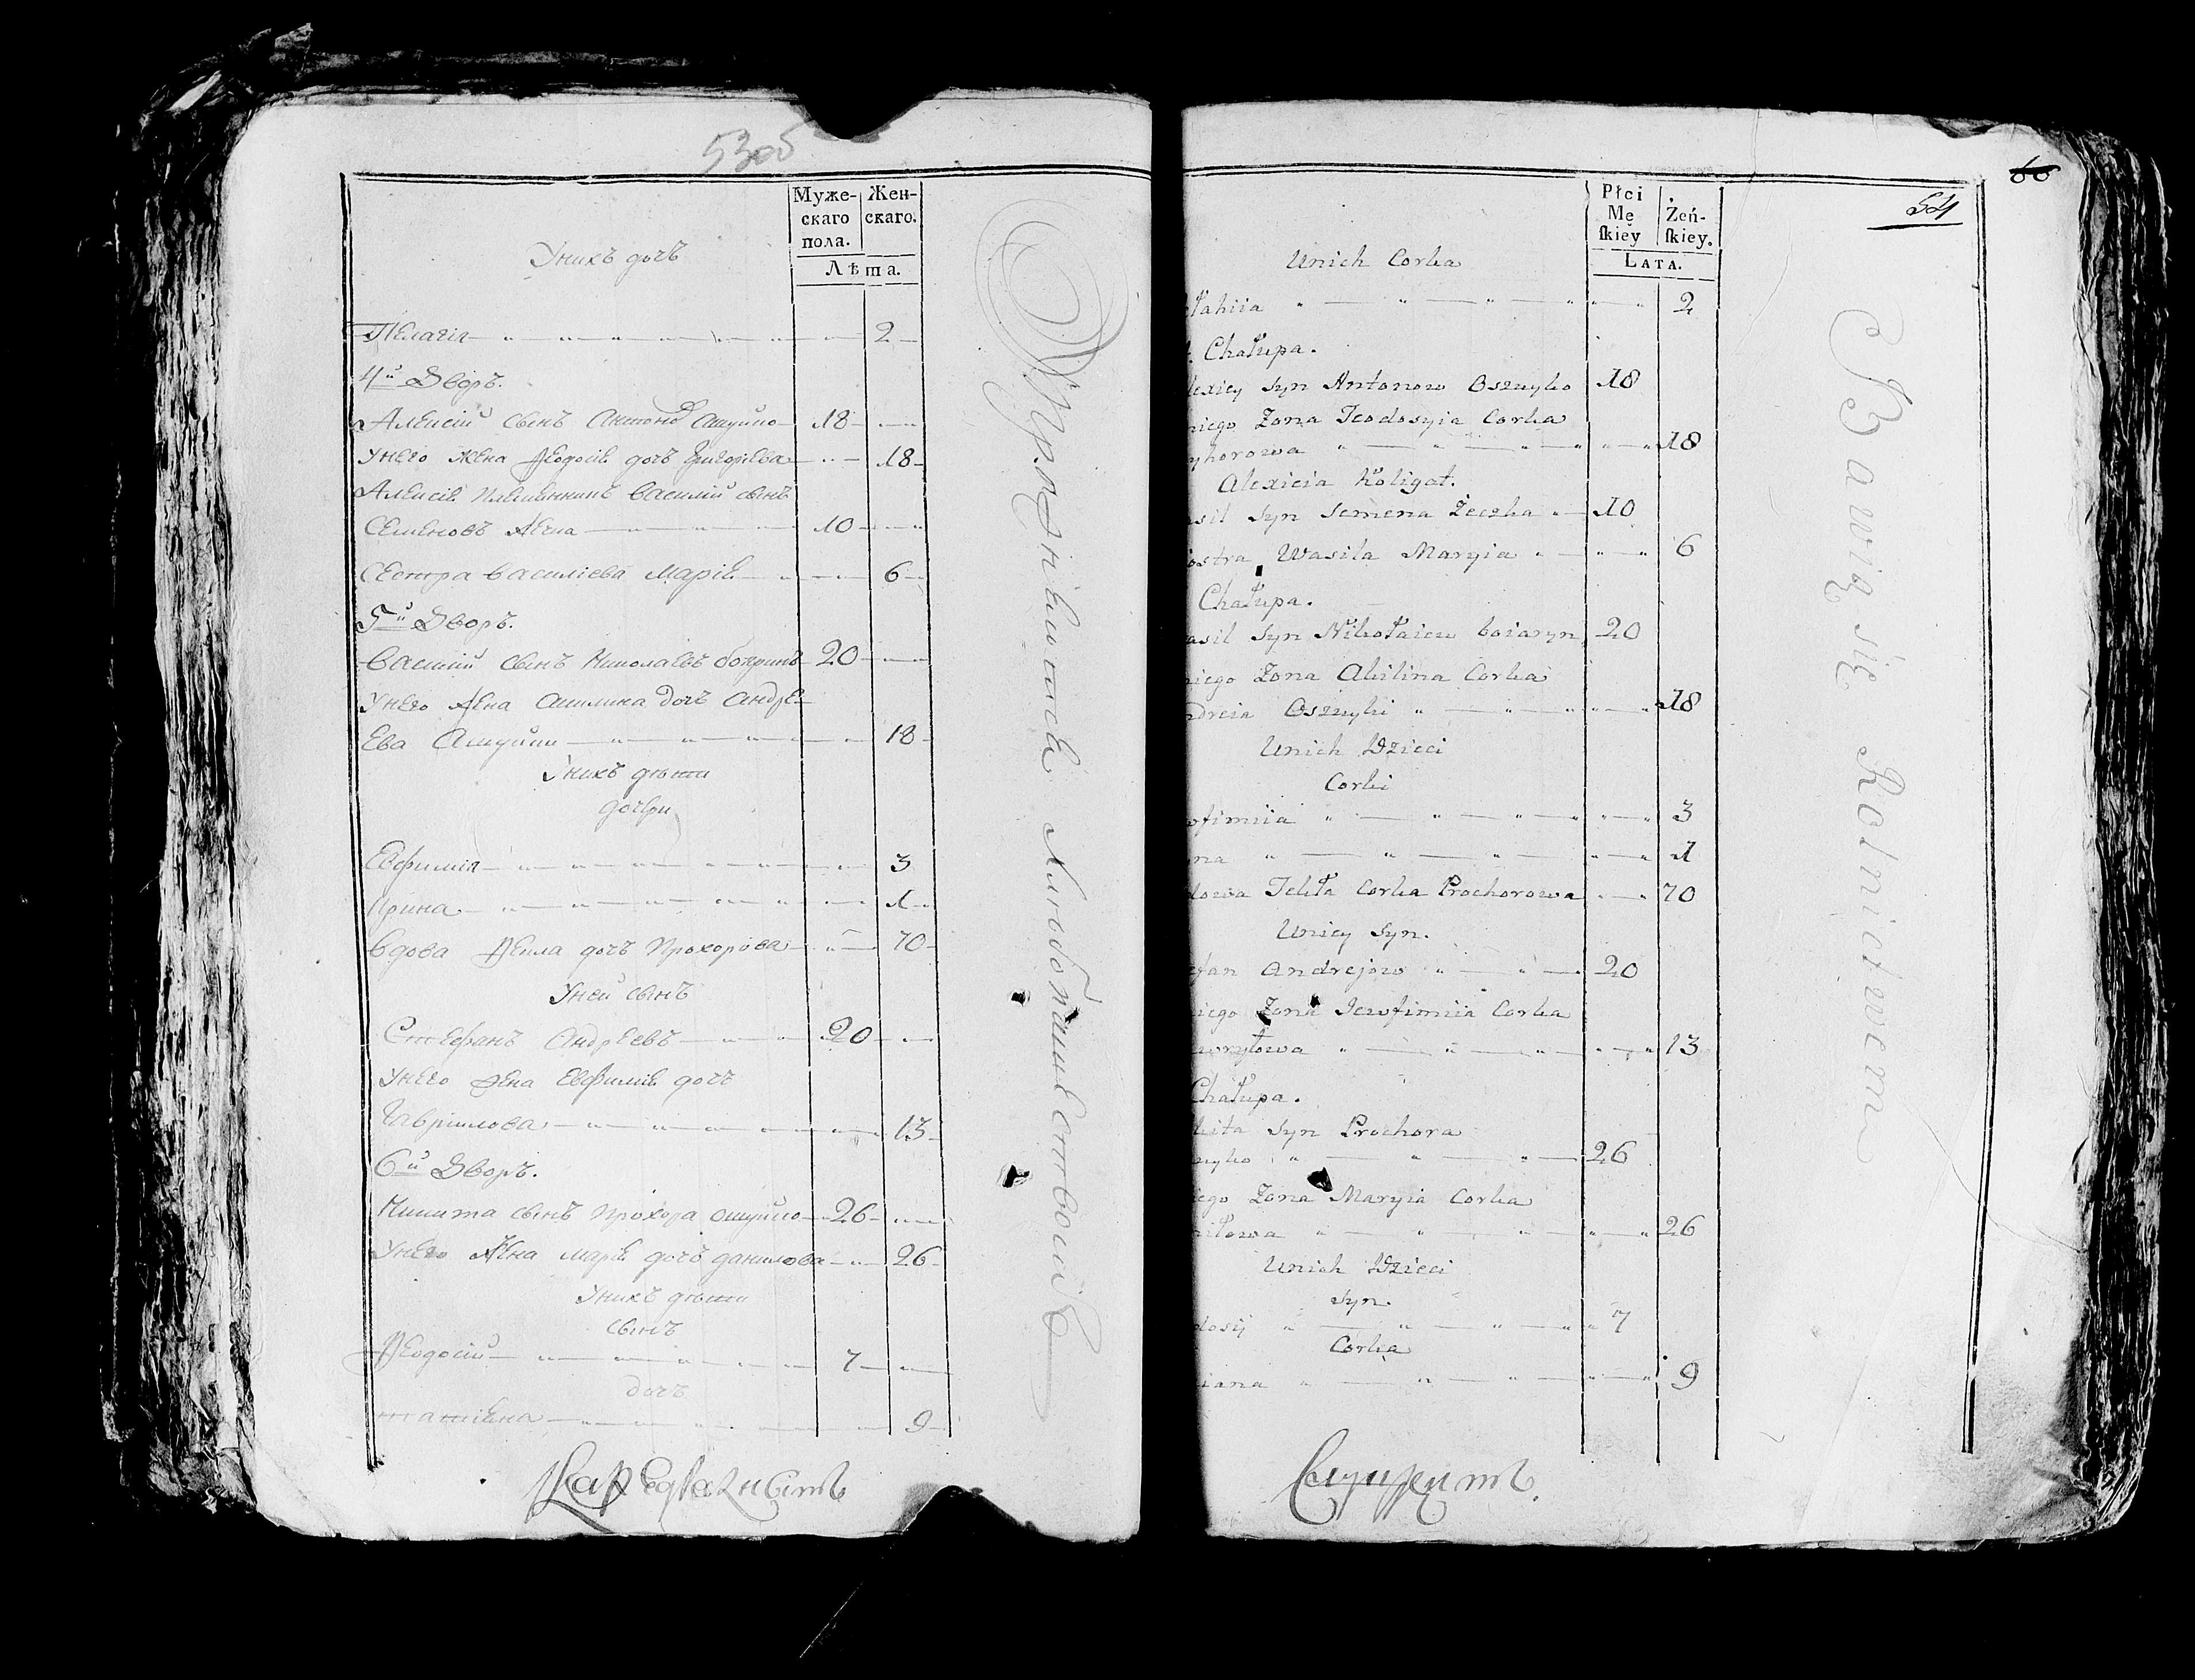 53об
Муже-
скаго
пола.
Жен-
скаго.
Лѣта.
Унихъ дочь
Пелагія 2
4й Дворъ.
Алексій сынъ Антоновъ 18
Унего жена Ѳеодосія дочь Григорьева 18
Алексія племянникъ василій сынъ
Семеновъ 10
Сестра василіева Марія 6
5й Дворъ.
василій сынъ Николаевъ бояринъ 20
Унего жена Акилина дочь Андре-
ева 18
Унихъ дѣти
дочери
Евфимія 3
Ирина 1
вдова Ѳекла дочь Прохорова 70
Уней сынъ
Стефанъ Андреевъ 20
Унего жена Евфимія дочь
Гаврилова 13
6й Дворъ.
Никита сынъ Прохора ошуйко 26
Унего жена марія дочь данилова 26
Унихъ дѣти
сынъ
Ѳеодосій 7
дочь
татіана 9
Упражняются хлебопашествомъ
54
Płci
Mę
ſkiey
Żeń-
ſkiey.
LATA.
Unich Corka
łahiia 2
Chałupa.
lexiey Syn Antonow Oszuyko 18
niego Zona Teodosyia Corka
yhorowa 18
Alexieia Koligat.
asil Syn Semena Zeczka 10
iostra Wasila Maryia 6
Chałupa.
asil Syn Nikołaiew boiaryn 20
niego Zona Akilina Corka
ndreia Oszuyki 18
Unich Dzieci
Corki
wfimiia 3
ina 1
dowa Tekła Corka Prochorowa 70
Uniey Syn.
efan Andrejow 20
niego Zona Jewfimiia Corka
wryłowa 13
Chałupa.
kita Syn Prochora
zuyko 26
iego Zona Maryia Corka
niłowa 26
Unich Dzieci
Syn.
dosij 7
Corka
iana 9
Bawią się Rolnictwem